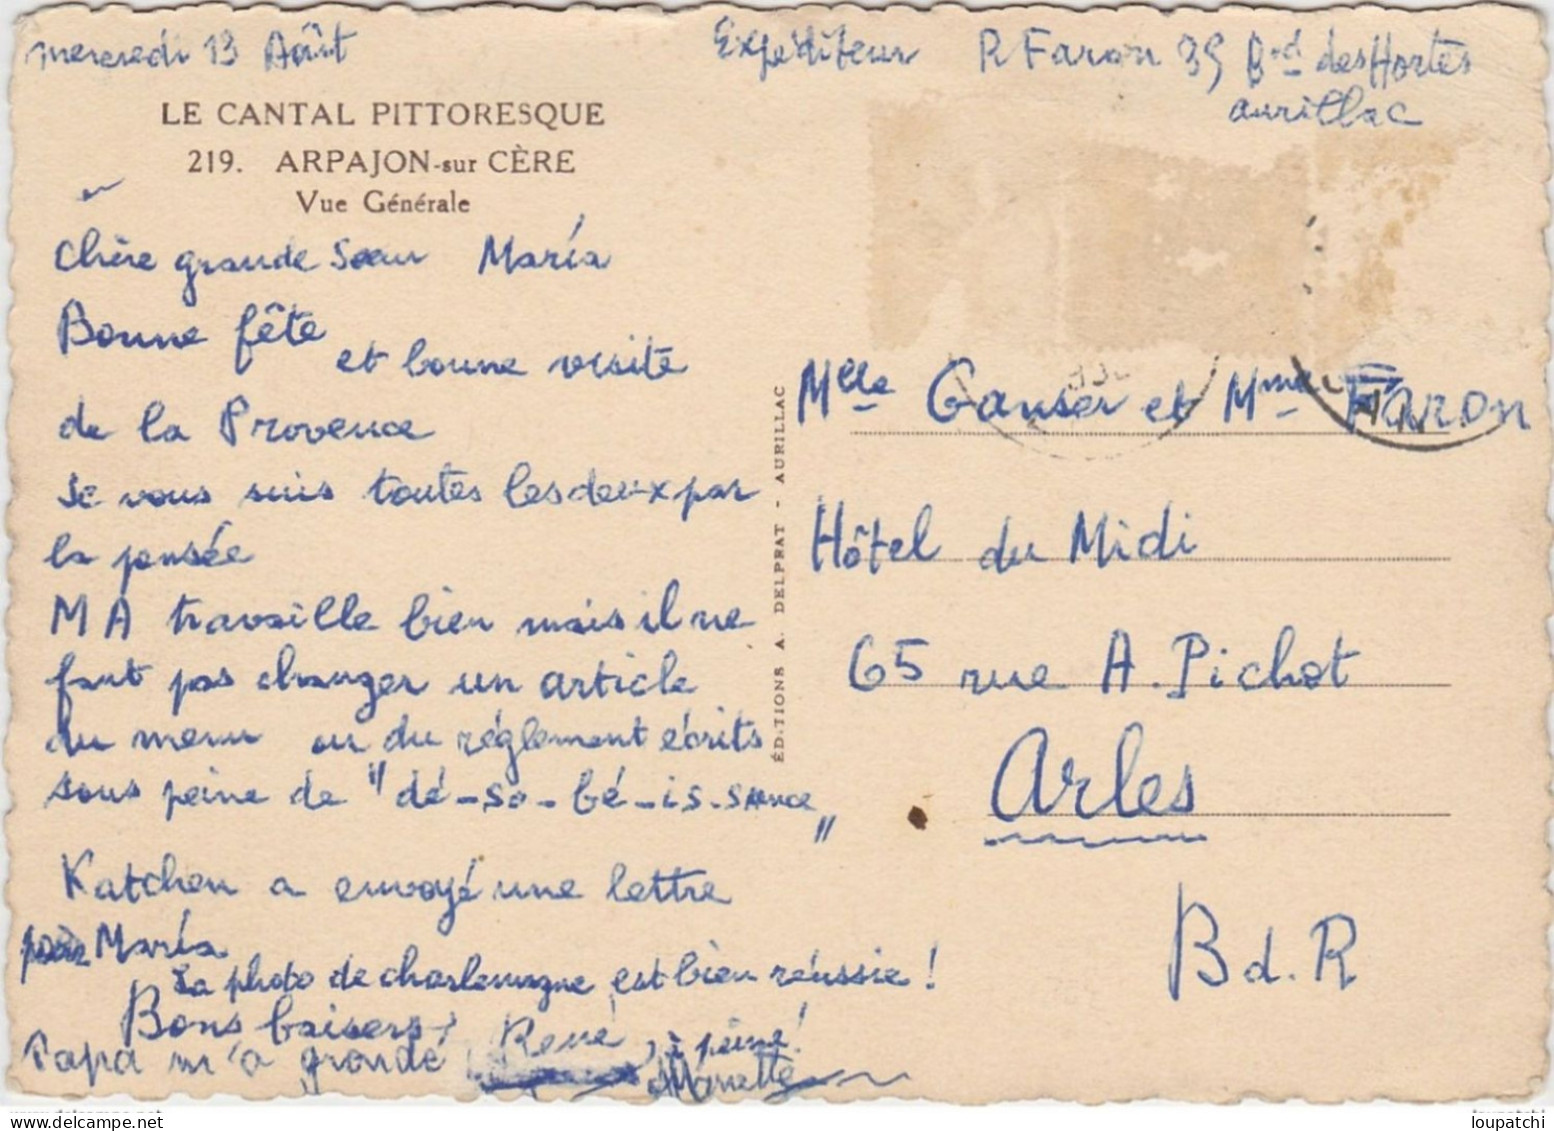 mercredi 13 Août
Expéditeur R Faron 39 Bd des Hortes
aurillac
LE CANTAL PITTORESQUE
219. ARPAJON-sur CÈRE
Vue Générale
Chère grande Sœur María
Bonne fête et bonne visite
de la Provence
Je vous suis toutes les deux par
la pensée
M A travaille bien mais il ne
faut pas changer un article
du menu ou du réglement écrits
sous peine de "dé-so-bé-is-sance"
Katchen a envoyé une lettre
pour María
La photo de charlemagne est bien réussie!
Bons baisers René
Papa m'a grondé, à peine!
ÉDITIONS A. DELPRAT - AURILLAC
Mlle Ganser et Mme Faron
Hôtel du Midi
65 rue A. Pichot
Arles
B d. R
loupatchi